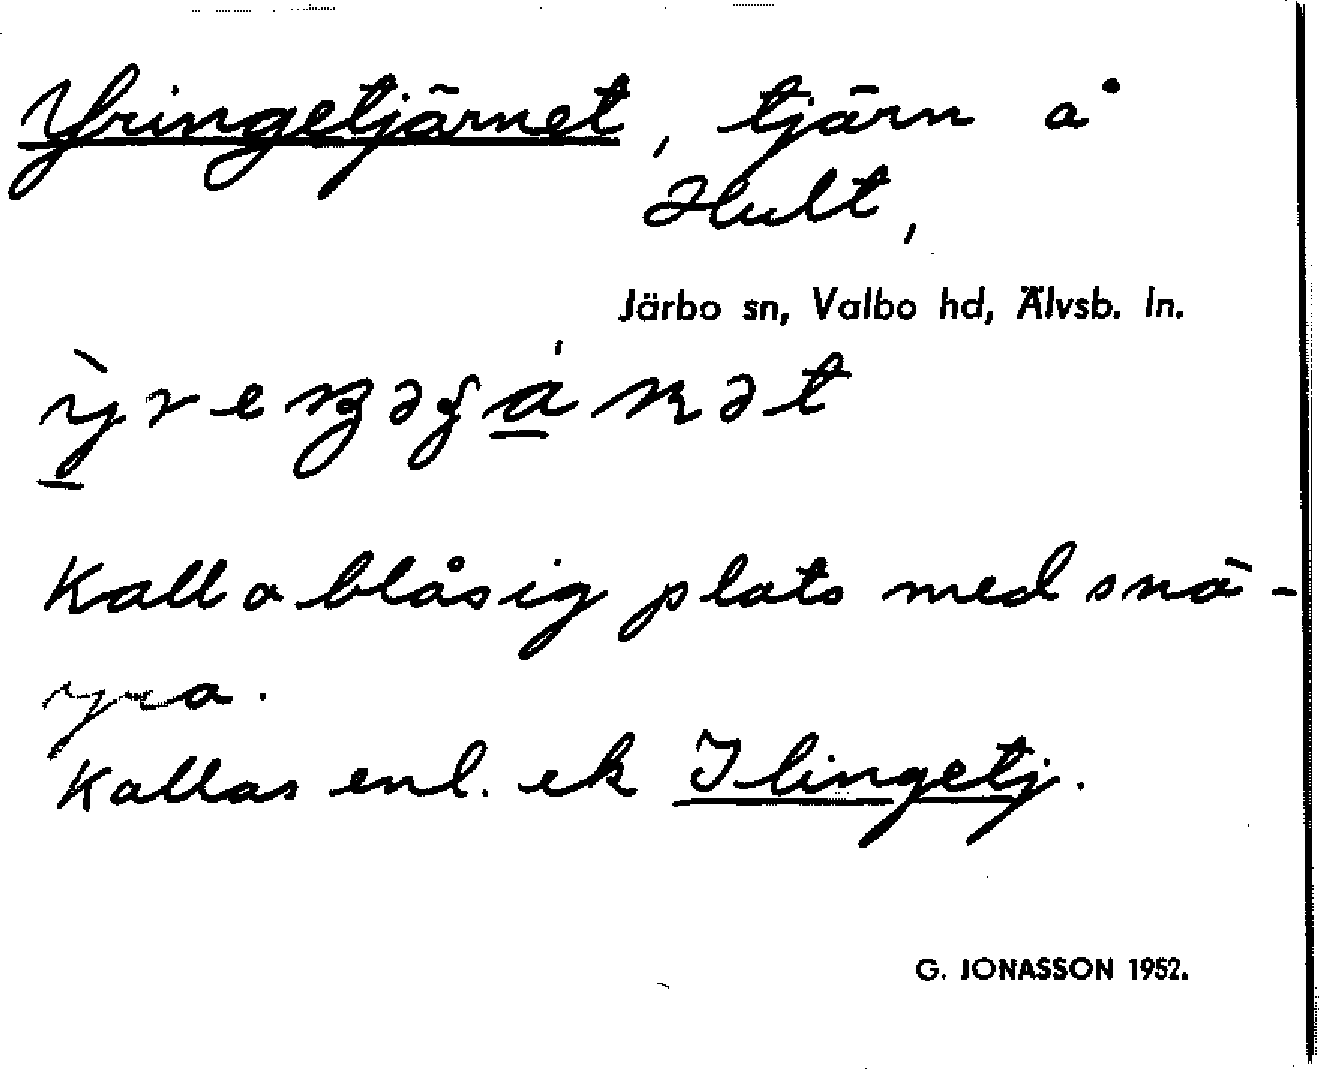 Yringetjärnet, tjärn å
Hult,
Järbo sn, Valbo hd, Älvsb. ln.
Kall o blåsig plats med snö-
yra.
Kallas enl. ek Ilingetj.
G. JONASSON 1952.